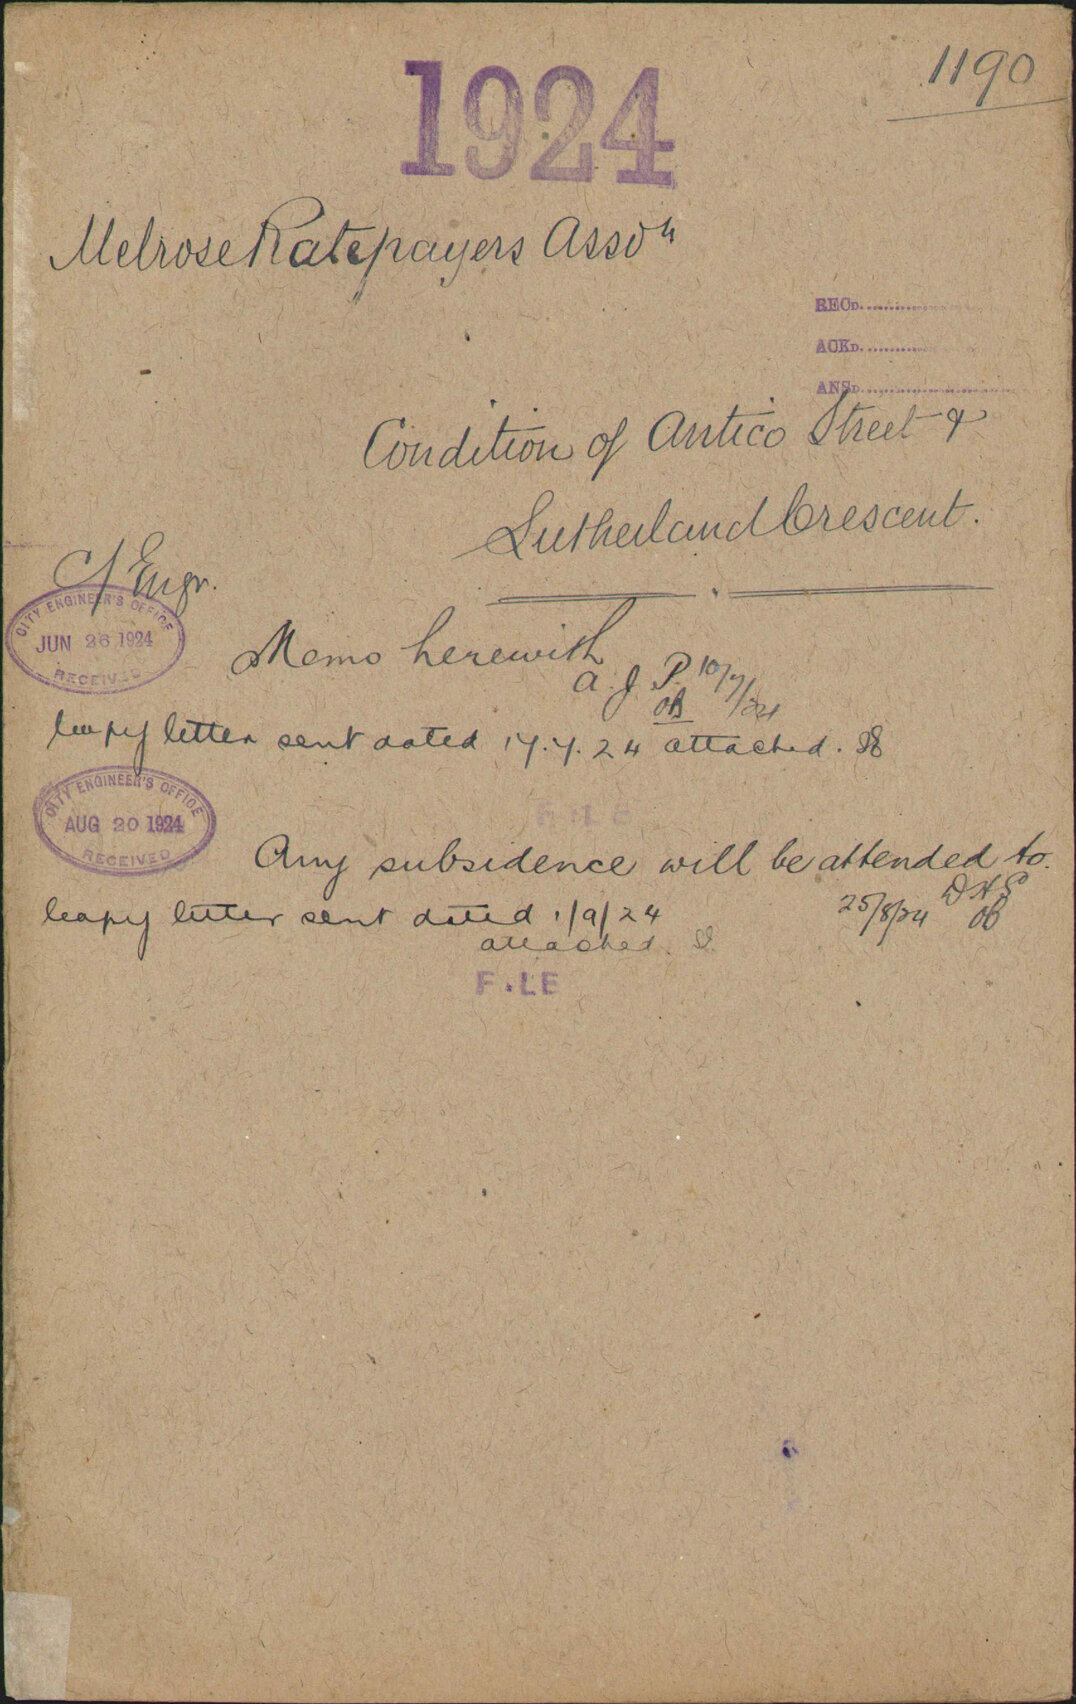 1190
1924
Melrose Ratepayers Asson
RECD.
ACKD.
ANSD.
Condition of Antico Street &
Sutherland Crescent.
C/Engr.
CITY ENGINEER'S OFFICE
JUN 26 1924
RECEIVED
Memo herewith
A. J. P. 10/7/24
Copy letter sent dated 17.7.24 attached.
CITY ENGINEER'S OFFICE
AUG 20 1924
RECEIVED
Any subsidence will be attended to.
25/8/24
Copy letter sent dated 1/9/24
attached.
FILE